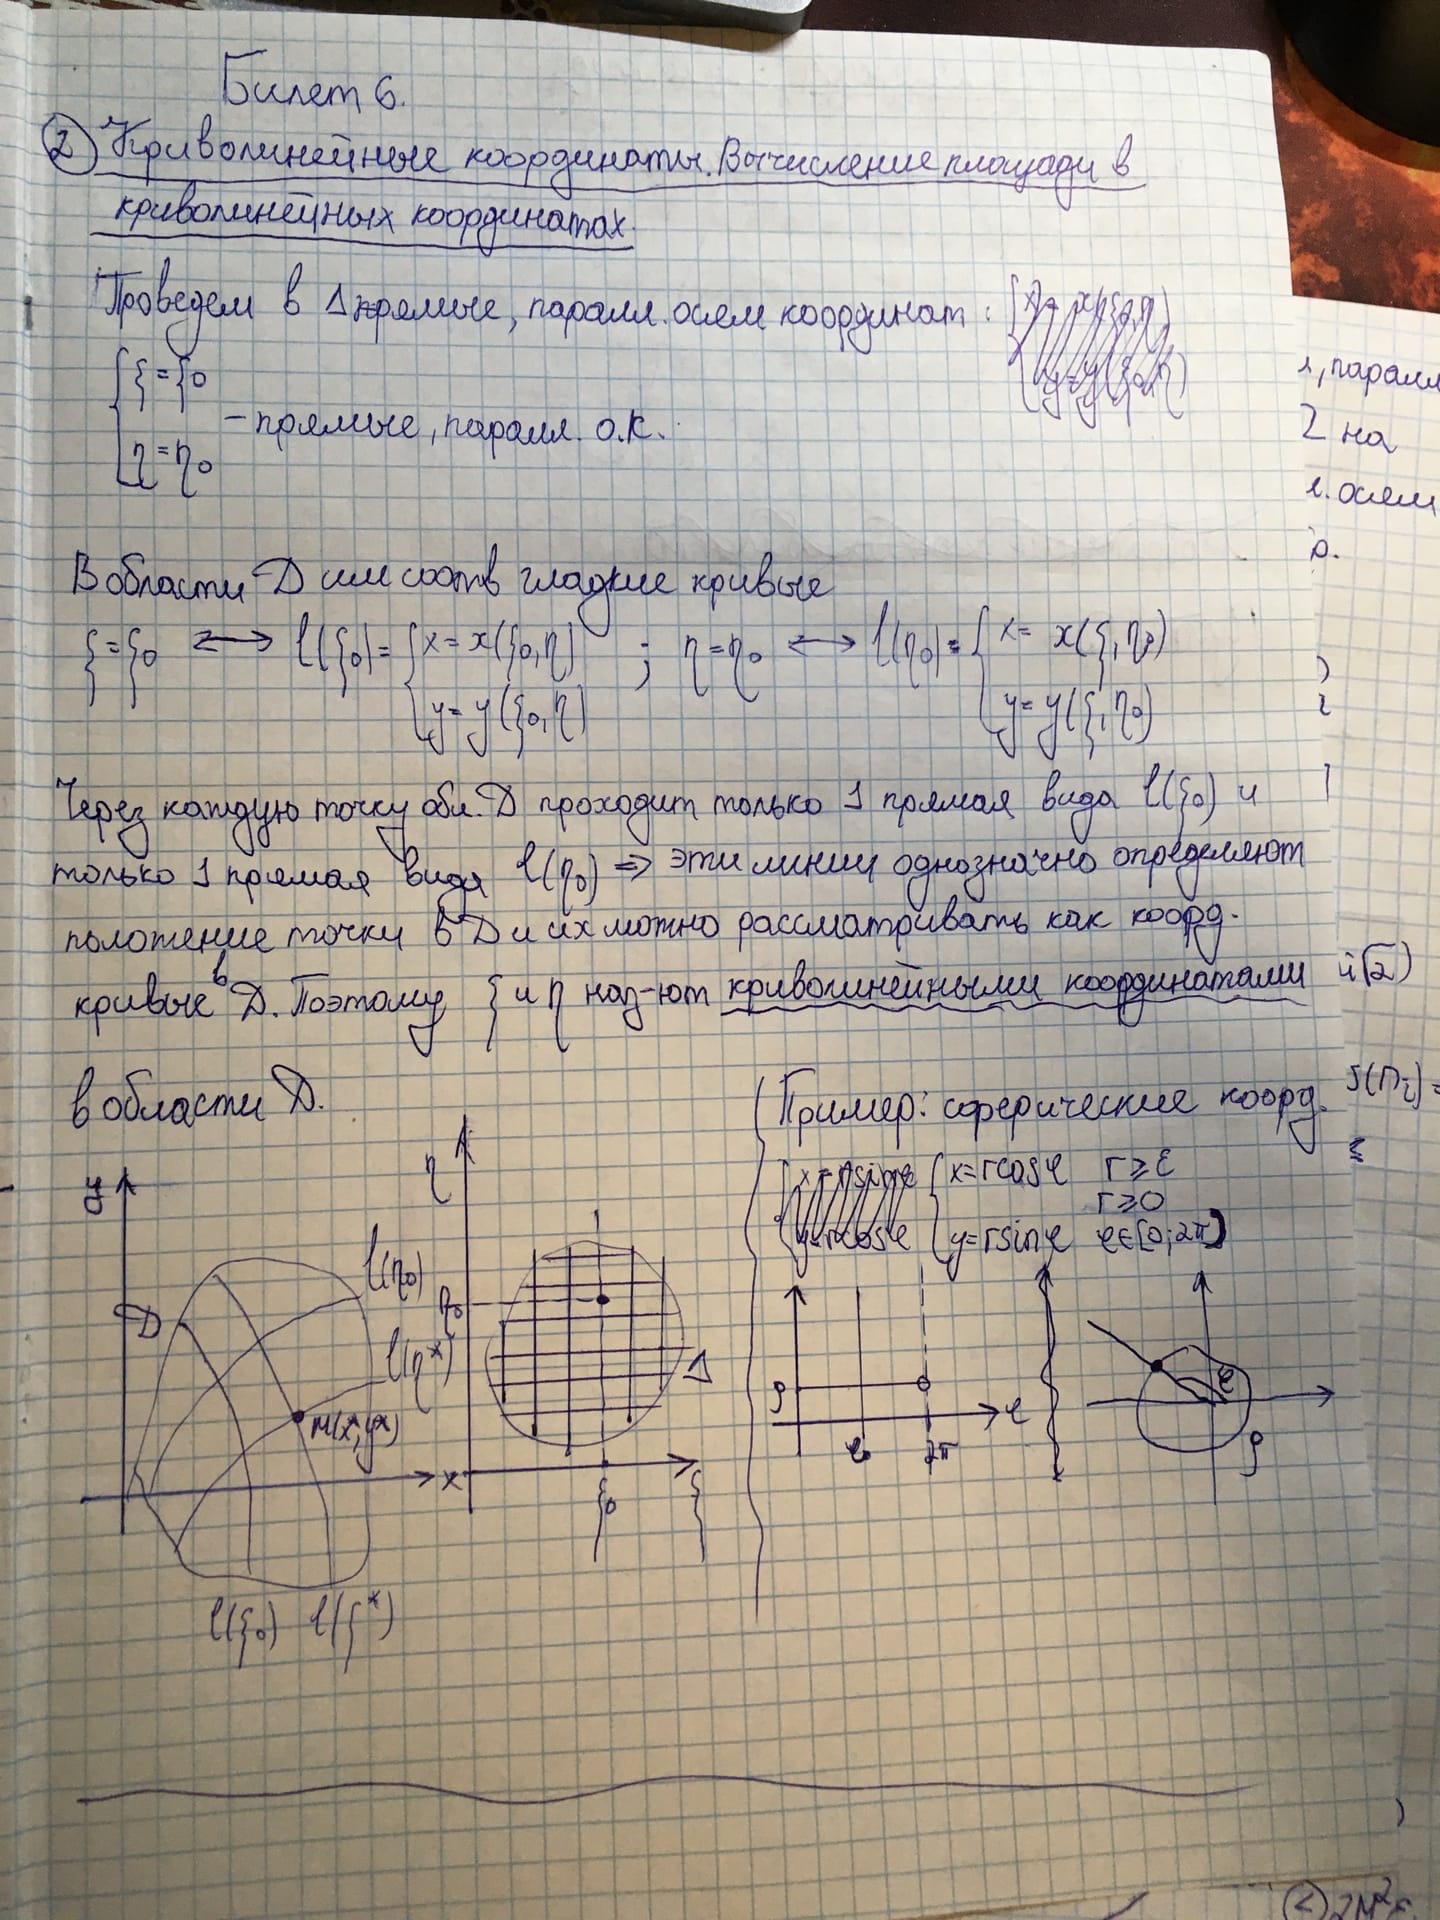 Билет 6.
② Криволинейные координаты. Вычисление площади в
криволинейных координатах.
Проведем в Δ прямые, паралл. осям координат:
{ξ=ξ₀
– прямые, паралл. о.к.
η=η₀
В области D им соотв гладкие кривые
ξ=ξ₀ ⟷ l(ξ₀)={x=x(ξ₀,η) ; η=η₀ ⟷ l(η₀)={x=x(ξ,η₀)
y=y(ξ₀,η) y=y(ξ,η₀)
Через каждую точку обл. D проходит только 1 прямая вида l(ξ₀) и
только 1 прямая вида l(η₀) ⇒ эти линии однозначно определяют
положение точки в D и их можно рассматривать как коорд.
кривые в D. Поэтому ξ и η наз-ют криволинейными координатами
в области D.
Пример: сферические коорд.
{x=rcosφ r≥ε
r≥0
y=rsinφ φ∈[0;2π)
y
D
l(η₀)
l(η*)
M(x*,y*)
x
l(ξ₀) l(ξ*)
η
η₀
Δ
ξ₀
ξ
ρ
φ₀
2π
φ
φ
ρ
, паралл
2 на
. осям
S(Пi)=